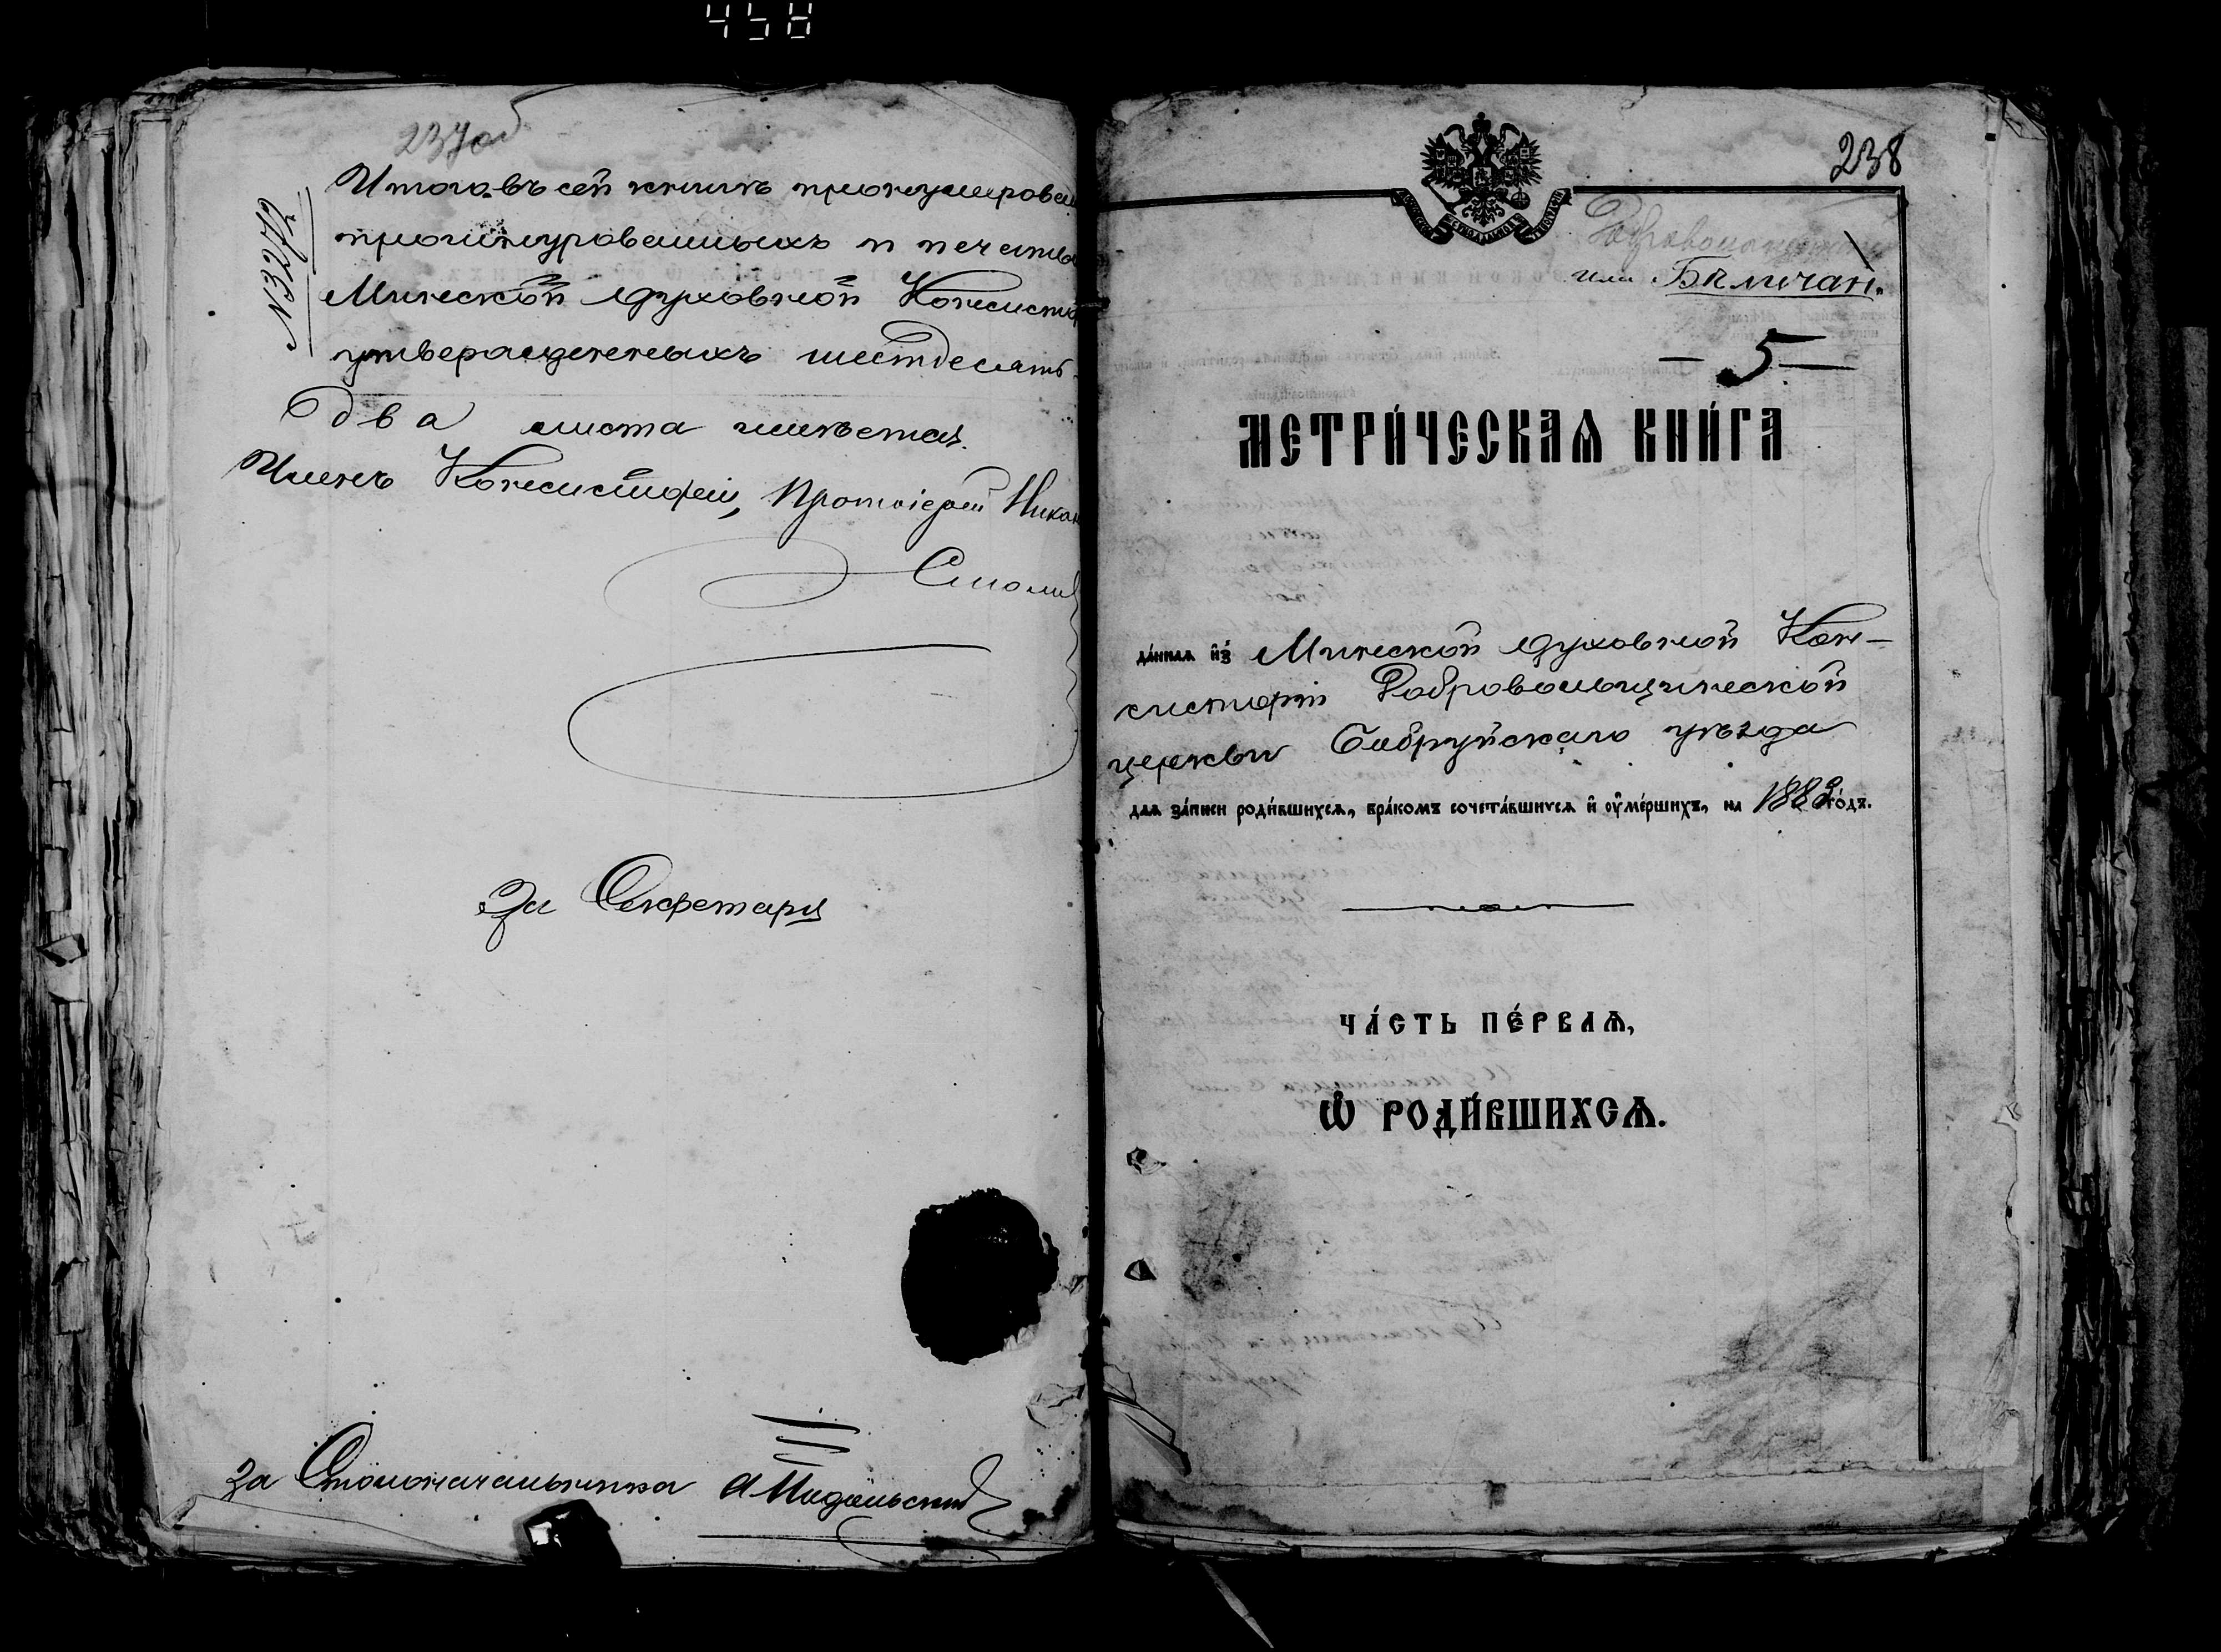 458
237об
№3272
Итого въ сей книгѣ пронумерован
прошнурованныхъ и печатью
Минской Духовной Консисто
утвержденныхъ шестдесятъ
два листа имѣется.
Членъ Консисторіи, Протоіерей Никан
Смолич
За Секретаря
За Столоначальника А Подольскій
238
или Бѣличан.
— 5 —
МЕТРИ́ЧЕСКАѦ КНИ́ГА
да́ннаѧ и҆з̾ Минской Духовной Кон-
систоріи Добровольщинской
церкви Бобруйскаго уѣзда
длѧ за́писи роди́вшихсѧ, бра́комъ сочета́вшихсѧ и҆ ᲂу҆ме́ршихъ, на 1882 го́дъ.
ЧА́СТЬ ПЕ́РВАѦ,
Ѡ҆ РОДИ́ВШИХСѦ.